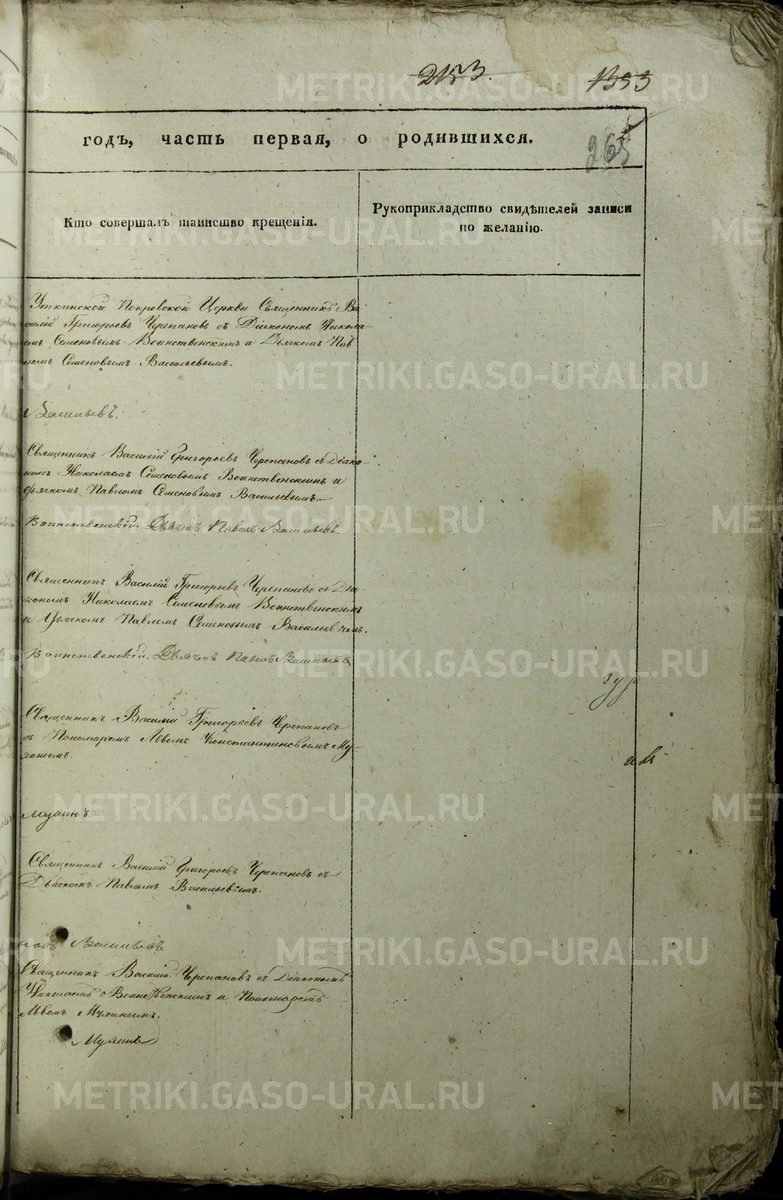 2153.
1353
265
годъ, часть первая, о родившихся.
Кто совершалъ таинство крещенія.
Рукоприкладство свидѣтелей записи
по желанію.
Уткинской Покровской Церкви Священникъ Ва-
силій Григорьевъ Черепановъ съ Діакономъ Никола-
емъ Семеновымъ Воинственскимъ и Дьячкомъ Пав-
ломъ Семеновымъ Васильевымъ.
Васильевъ.
Священникъ Василій Григорьевъ Черепановъ съ Діако-
номъ Николаемъ Семеновымъ Воинственскимъ и
Дьячкомъ Павломъ Семеновымъ Васильевымъ.
Воинственскій. Дьячекъ Павелъ Васильевъ.
Священникъ Василій Григорьевъ Черепановъ съ Діа-
кономъ Николаемъ Семеновымъ Воинственскимъ
и Дьячкомъ Павломъ Семеновымъ Васильевымъ.
Воинственскій. Дьячекъ Павелъ Васильевъ
Священникъ Василій Григорьевъ Черепановъ
съ Пономаремъ Львомъ Константиновымъ Му-
хинымъ.
Мухинъ
Священникъ Василій Григорьевъ Черепановъ съ
Дьячкомъ Павломъ Васильевымъ.
Васильевъ
Священникъ Василій Черепановъ съ Діакономъ
Николаемъ Воинственскимъ и Пономаремъ
Львомъ Мухинымъ.
Мухинъ
METRIKI.GASO-URAL.RU